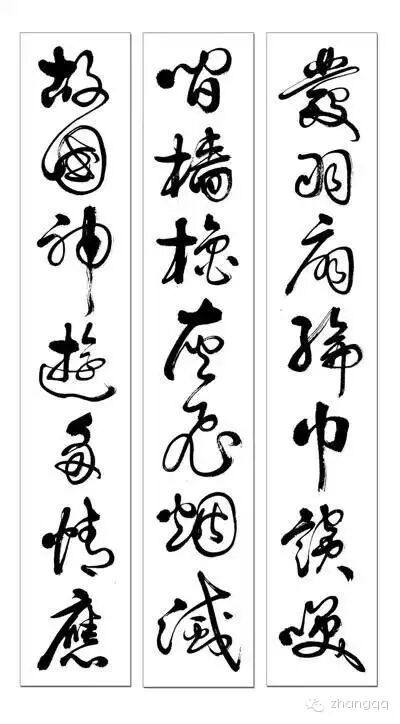 發羽扇綸巾談咲
間檣櫓灰飛烟滅
故國神遊多情應
zhangqq